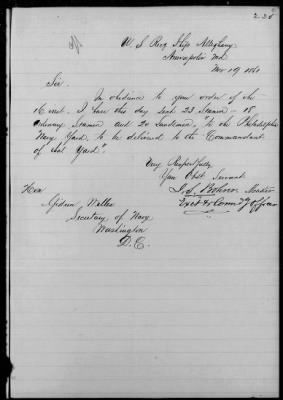 235
U. S. Recg Ship Allegheny
Annapolis Md.
Nov 19 1861
Sir.
In obedience to your order of the
inst. I have this day sent 23 Seamen - 18
Ordinary Seamen and 20 Landsmen, "to the Philadelphia
Navy Yard, to be delivered to the Commandant
of that Yard".
Very Respectfully
Your Obt Servant
Hon
Gideon Welles
Secretary of Navy
Washington
D. C.
Exct & Comdg Officer